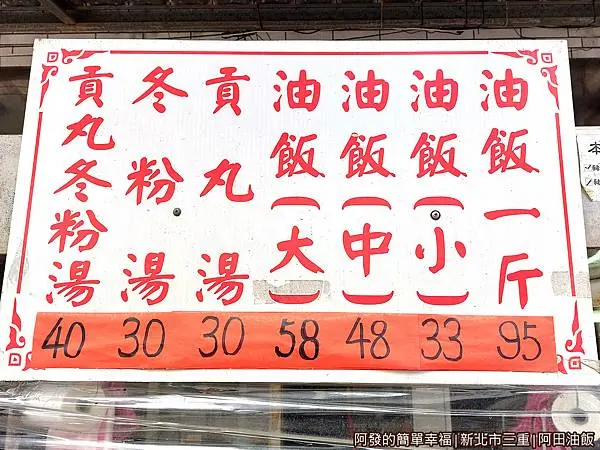 油飯一斤
95
油飯(小)
33
油飯(中)
48
油飯(大)
58
貢丸湯
30
冬粉湯
30
貢丸冬粉湯
40
本
阿發的簡單幸福|新北市三重|阿田油飯